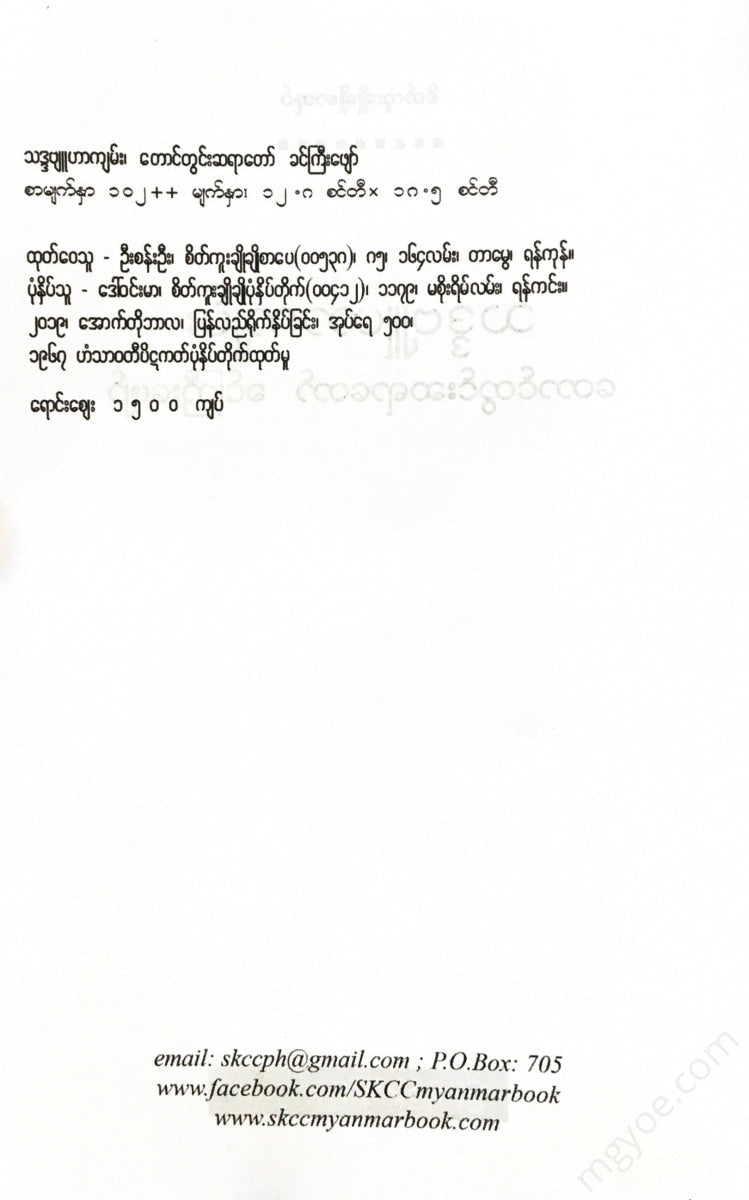 သဒ္ဒဗျူဟာကျမ်း၊ တောင်တွင်းဆရာတော် ခင်ကြီးဖျော်
စာမျက်နှာ ၁၀၂++ မျက်နှာ၊ ၁၂.၈ စင်တီ× ၁၈.၅ စင်တီ
ထုတ်ဝေသူ - ဦးစန်းဦး၊ စိတ်ကူးချိုချိုစာပေ(၀၀၅၃၈)၊ ၈၅၊ ၁၆၄လမ်း၊ တာမွေ၊ ရန်ကုန်။
ပုံနှိပ်သူ - ဒေါ်ဝင်းမာ၊ စိတ်ကူးချိုချိုပုံနှိပ်တိုက်(၀၀၄၁၂)၊ ၁၁၇၉၊ မစိုးရိမ်လမ်း၊ ရန်ကင်း။
၂၀၁၉၊ အောက်တိုဘာလ၊ ပြန်လည်ရိုက်နှိပ်ခြင်း၊ အုပ်ရေ ၅၀၀၊
၁၉၆၇ ဟံသာဝတီပိဋကတ်ပုံနှိပ်တိုက်ထုတ်မူ
ရောင်းဈေး ၁၅၀၀ ကျပ်
email: skccph@gmail.com ; P.O.Box: 705
www.facebook.com/SKCCmyanmarbook
www.skccmyanmarbook.com
mgyoe.com